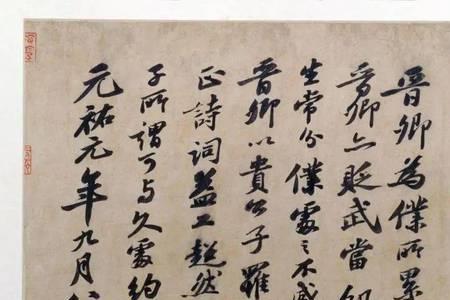 晉卿為僕所累
晉卿亦貶武當
生常分僕處之不戚
晉卿以貴公子罹
正詩詞益工超然
子所謂可與久處約
元祐元年九月八